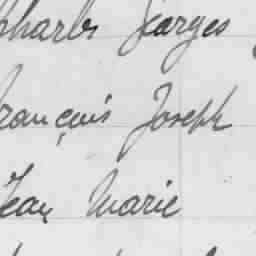 Charles Georges
François Joseph
Jean Marie